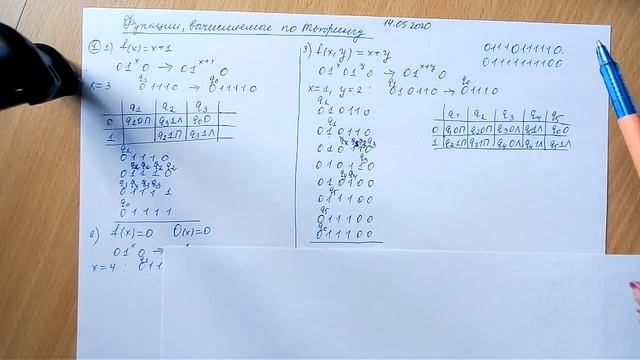 Функции, вычислимые по Тьюрингу 14.05.2020
① 1) f(x)=x+1
01ˣ0 → 01ˣ⁺¹0
x=3 q₁01110 → q₀011110
q₁ q₂ q₃
0 q₂0П q₃1Л q₀0
1 q₂1П q₃1Л
q₁
01110
q₂ q₂ q₂ q₂
01110
q₃ q₃ q₃ q₃
01111
q₀
01111
2) f(x)=0 O(x)=0
01ˣ0 →
x=4 : 011
3) f(x,y)=x+y
01ˣ01ʸ0 → 01ˣ⁺ʸ0
x=1, y=2 : q₁010110 → q₀01110
q₂
010110
q₁
010110
010110
q₃
010110
q₄ q₄
010100
q₅
011100
q₅
011100
q₀
011100
01110111110.
01111111100
q₁ q₂ q₃ q₄ q₅
0 q₂0П q₃0Л q₄1Л q₀0
1 q₂1П q₃1П q₄0Л q₄1Л q₅1Л